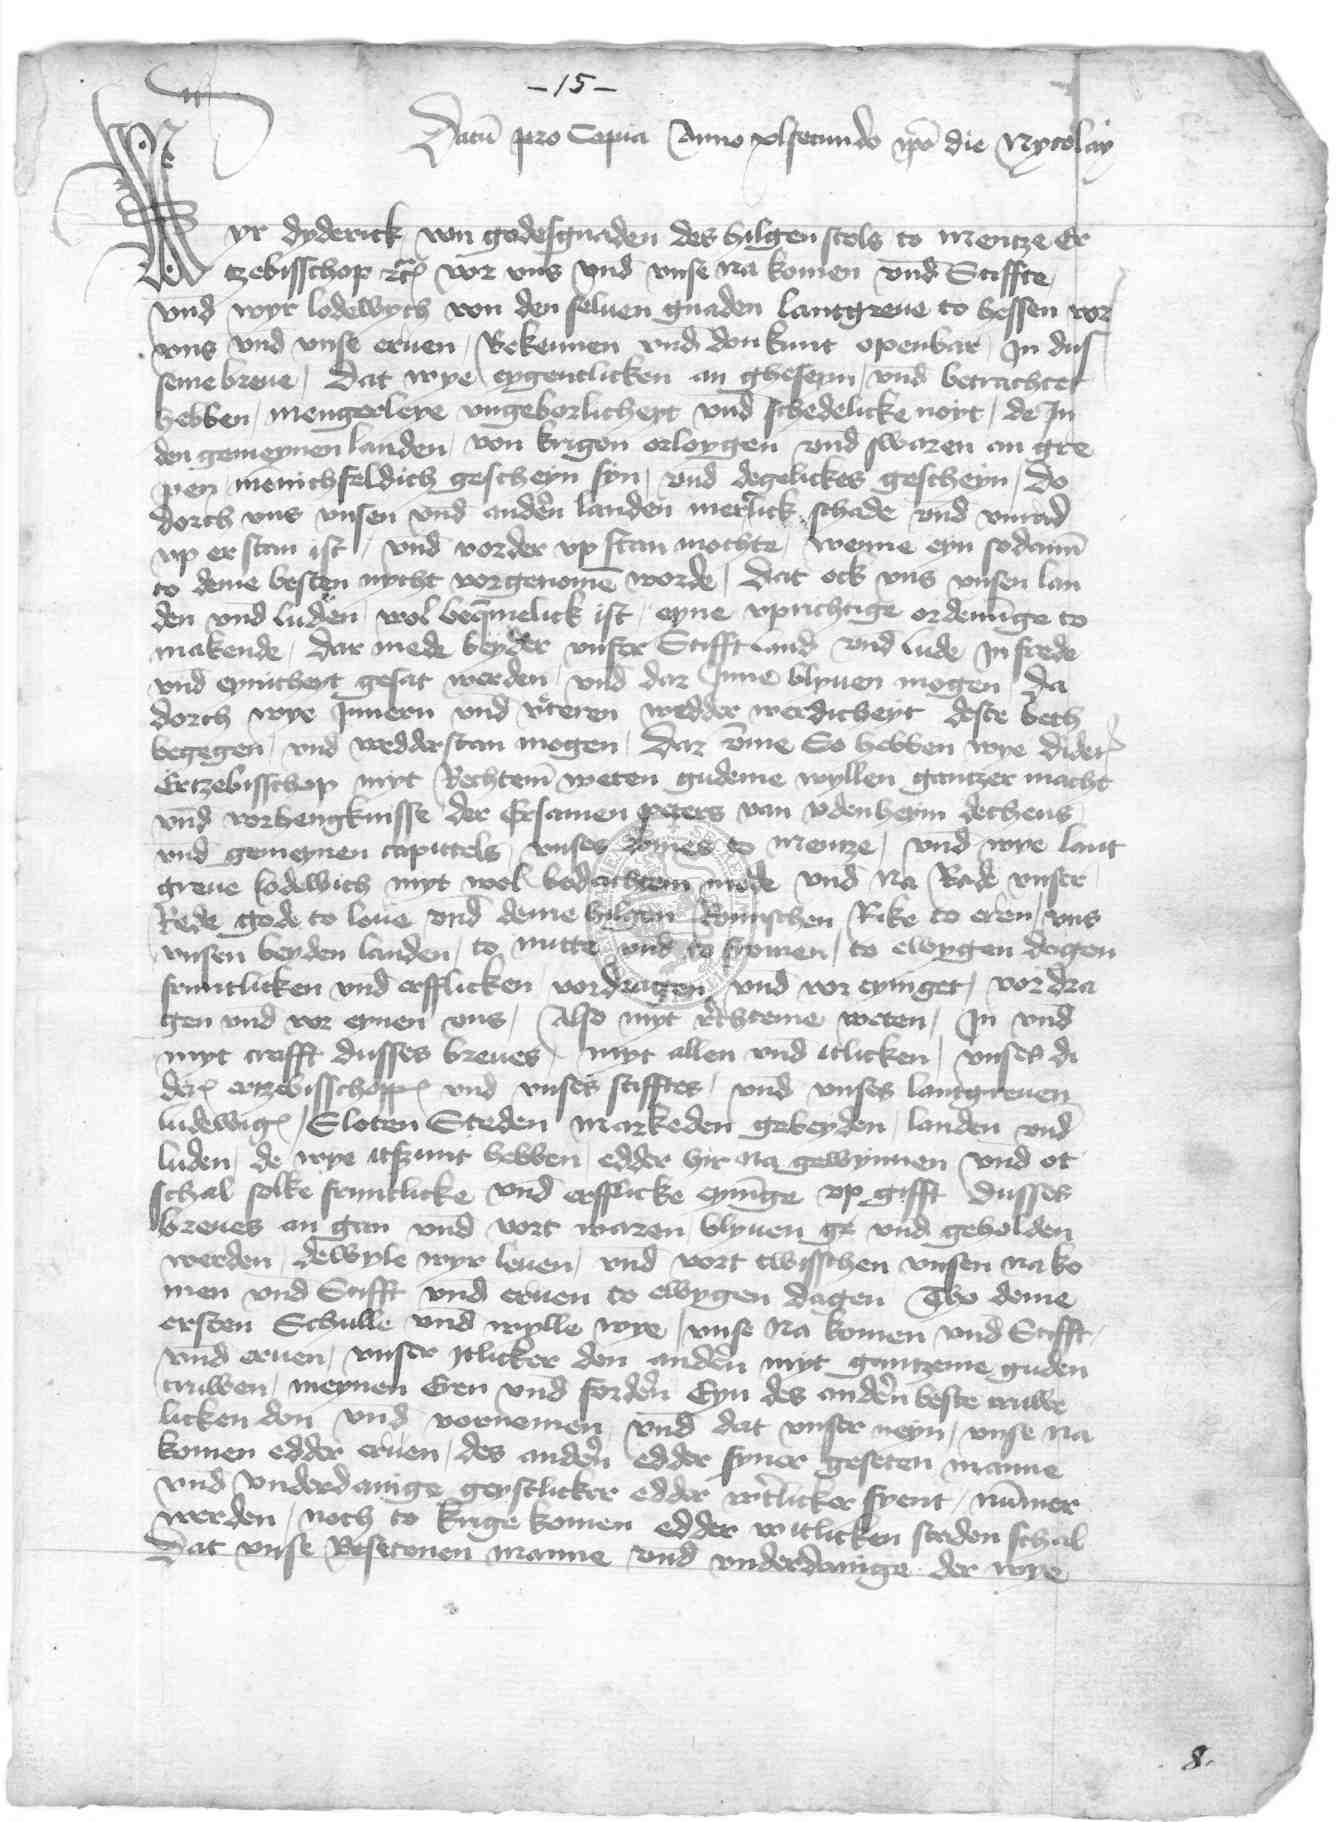 -15-
Datū pro Copia Anno xlsecundo ipō die Nycolay
Wyr dyderick von godesgnaden des hilgen stols to mentze Er
tzebisschop etc vor vns vnd vnse na komen vnd Stiffte
vnd wyr lodewych von den seluen gnaden lantgreue to hessen vor
vns vnd vnse eruen / Bekennen vnd don kunt openbar / In dus
seme breue / Dat wye eygentlicken an gheseyn / vnd betrachtet
hebben / mengerleye vngeborlicheyt vnd schedelicke noyt / de In
den gemeynen landen / von krigen orloygen vnd swaren an gre
pen mennichfeldich gescheyn syn / vnd degelickes gescheyn / Do
dorch vns vnsen vnd anderen landen merclick schade vnd vnrad
vp er stan ist / vnd vorder vp stan mochte / wenne eyn sodann
to deme besten nycht vorgenomē worde / Dat ock vns vnsen lan
den vnd luden / wol beqwemelick ist / eyne vprichtige ordenūge to
makende / Dar mede beyder vnser Stifft land vnd lude In frede
vnd eynicheyt gesat werden / vnd dar Inne blyuen mogen / Da
dorch wye Innern vnd vteren wedder werdicheyt deste beth
begegen / vnd wedderstan mogen / Dar vmme So hebben wye Dider
Ertzebisschop myt Rechtem weten gudeme wyllen gantzer macht
vnd vorhengknisse der Ersamen peters van vdenheym dechens
vnd gemeynen capittels vnses domes to mentze / vnd wye lant
greue lodewich myt wol bedachtem mode vnd na Rade vnser
Rede gode to loue vnd deme hilgen Romschen Rike to eren / vns
vnsen beyden landen / to nutte vnd to fromen / to ewygen dagen
fruntlicken vnd erfflicken vordragen vnd vor eyniget / vordra
gen vnd vor eynen vns / Also myt rechteme weten / In vnd
myt crafft dusses breues / myt allen vnd itlicken / vnses di
der ertzebisschopp vnd vnses stifftes / vnd vnses lantgreuen
ludewigs / Sloten Steden markeden gebeyden / landen vnd
luden / de wye itzunt hebben / edder hir na gewynnen vnd ot
schal solke fruntlicke vnd erfflicke eynūge vp gifft dusses
breues an gan vnd vort waren / blyuen vnd geholden
werden / dewyle wyr leuen / vnd vort twisschen vnsen nako
men vnd Stifft vnd eruen to ewygen dagen Tho deme
ersten Schulle vnd wylle wye / vnse na komen vnd Stifft
vnd eruen / vnser itlicker den andern myt gantzeme guden
truwen / meynen Eren vnd fordern Eyn des andern beste truwe
licken don vnd vornemen / vnd dat vnser neyn / vnse na
komen edder eruen / des andern edder syner geseten manne
vnd vnderdanige geystlicker edder wertlicker fyent / nummer
werden / noch to krige komen edder witlicken staden schal
Dat vnse Besetenen manne vnd vnderdanige der wye
8.